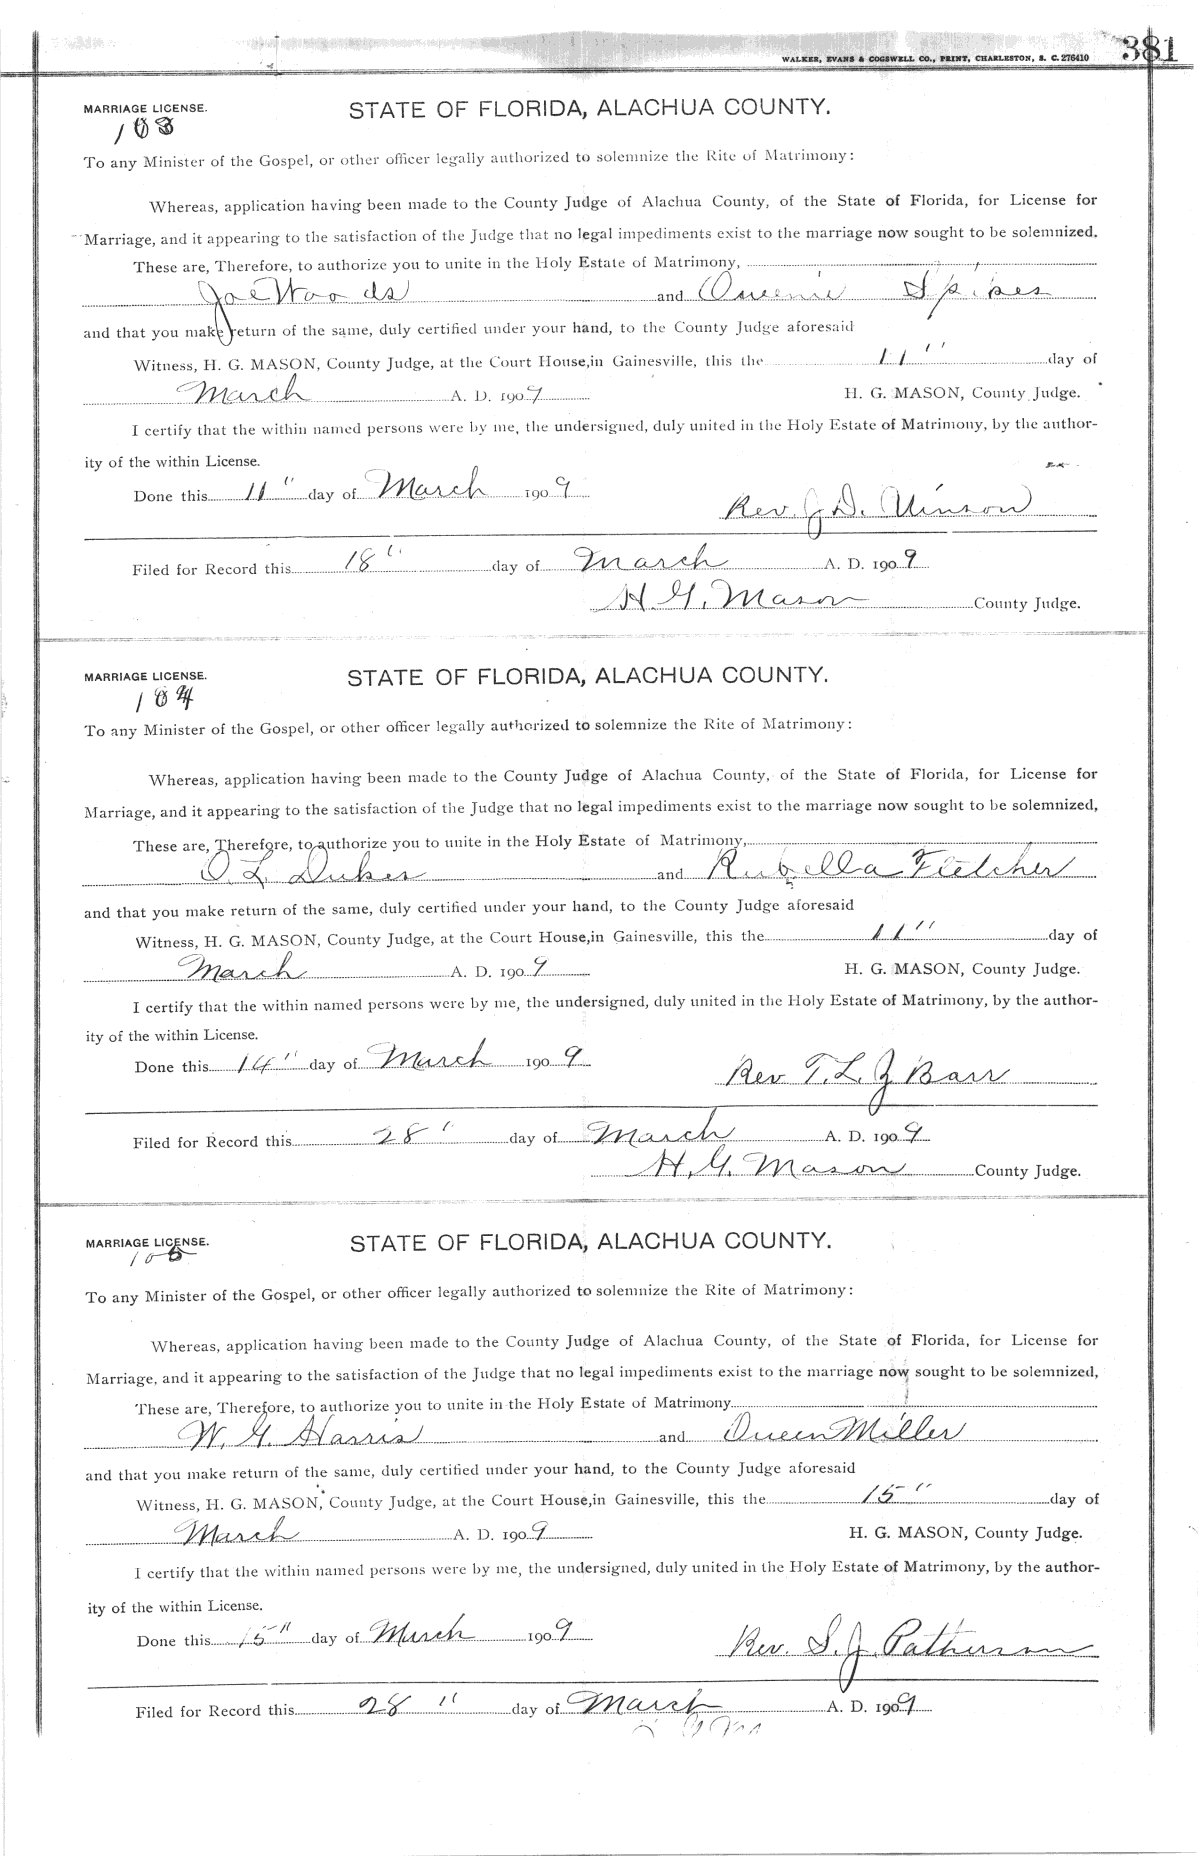 381
WALKER, EVANS & COGSWELL CO., PRINT, CHARLESTON, S. C. 276410
MARRIAGE LICENSE. STATE OF FLORIDA, ALACHUA COUNTY.
103
To any Minister of the Gospel, or other officer legally authorized to solemnize the Rite of Matrimony:
Whereas, application having been made to the County Judge of Alachua County, of the State of Florida, for License for
Marriage, and it appearing to the satisfaction of the Judge that no legal impediments exist to the marriage now sought to be solemnized.
These are, Therefore, to authorize you to unite in the Holy Estate of Matrimony,
Joe Woods and Queenie Spikes
and that you make return of the same, duly certified under your hand, to the County Judge aforesaid
Witness, H. G. MASON, County Judge, at the Court House, in Gainesville, this the 11" day of
March A. D. 1909 H. G. MASON, County Judge.
I certify that the within named persons were by me, the undersigned, duly united in the Holy Estate of Matrimony, by the author-
ity of the within License.
Done this 11" day of March 1909
Rev. J. D. Vinson
Filed for Record this 18" day of March A. D. 1909
H. G. Mason County Judge.
MARRIAGE LICENSE. STATE OF FLORIDA, ALACHUA COUNTY.
104
To any Minister of the Gospel, or other officer legally authorized to solemnize the Rite of Matrimony:
Whereas, application having been made to the County Judge of Alachua County, of the State of Florida, for License for
Marriage, and it appearing to the satisfaction of the Judge that no legal impediments exist to the marriage now sought to be solemnized,
These are, Therefore, to authorize you to unite in the Holy Estate of Matrimony,
O. L. Dukes and Rubella Fletcher
and that you make return of the same, duly certified under your hand, to the County Judge aforesaid
Witness, H. G. MASON, County Judge, at the Court House, in Gainesville, this the 11" day of
March A. D. 1909 H. G. MASON, County Judge.
I certify that the within named persons were by me, the undersigned, duly united in the Holy Estate of Matrimony, by the author-
ity of the within License.
Done this 14" day of March 1909
Rev T. L. J Barr
Filed for Record this 28" day of March A. D. 1909
H. G. Mason County Judge.
MARRIAGE LICENSE. STATE OF FLORIDA, ALACHUA COUNTY.
105
To any Minister of the Gospel, or other officer legally authorized to solemnize the Rite of Matrimony:
Whereas, application having been made to the County Judge of Alachua County, of the State of Florida, for License for
Marriage, and it appearing to the satisfaction of the Judge that no legal impediments exist to the marriage now sought to be solemnized,
These are, Therefore, to authorize you to unite in the Holy Estate of Matrimony
W. G. Harris and Queen Miller
and that you make return of the same, duly certified under your hand, to the County Judge aforesaid
Witness, H. G. MASON, County Judge, at the Court House, in Gainesville, this the 15" day of
March A. D. 1909 H. G. MASON, County Judge.
I certify that the within named persons were by me, the undersigned, duly united in the Holy Estate of Matrimony, by the author-
ity of the within License.
Done this 15" day of March 1909
Rev. S. J. Patherson
Filed for Record this 28" day of March A. D. 1909